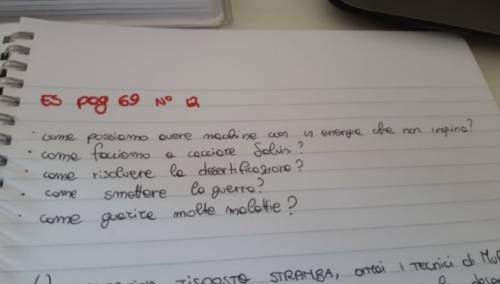 ES pag 69 N° 12
· come possiamo avere machine con un energia che non inquina?
· come facciamo a cacciare Salvini?
· come risolvere la desertificazione?
· come smettere la guerra?
· come guarire molte malattie?
RISPOSTA STRAMBA, ormai i tecnici di